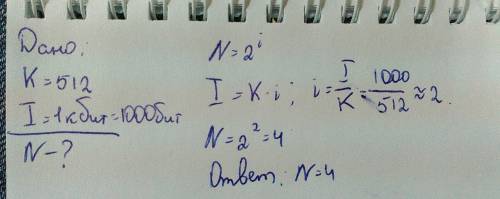 Дано:
K = 512
I = 1кбит = 1000бит
N - ?
N = 2^i
I = K · i ; i = I/K = 1000/512 ≈ 2.
N = 2² = 4
Ответ: N = 4